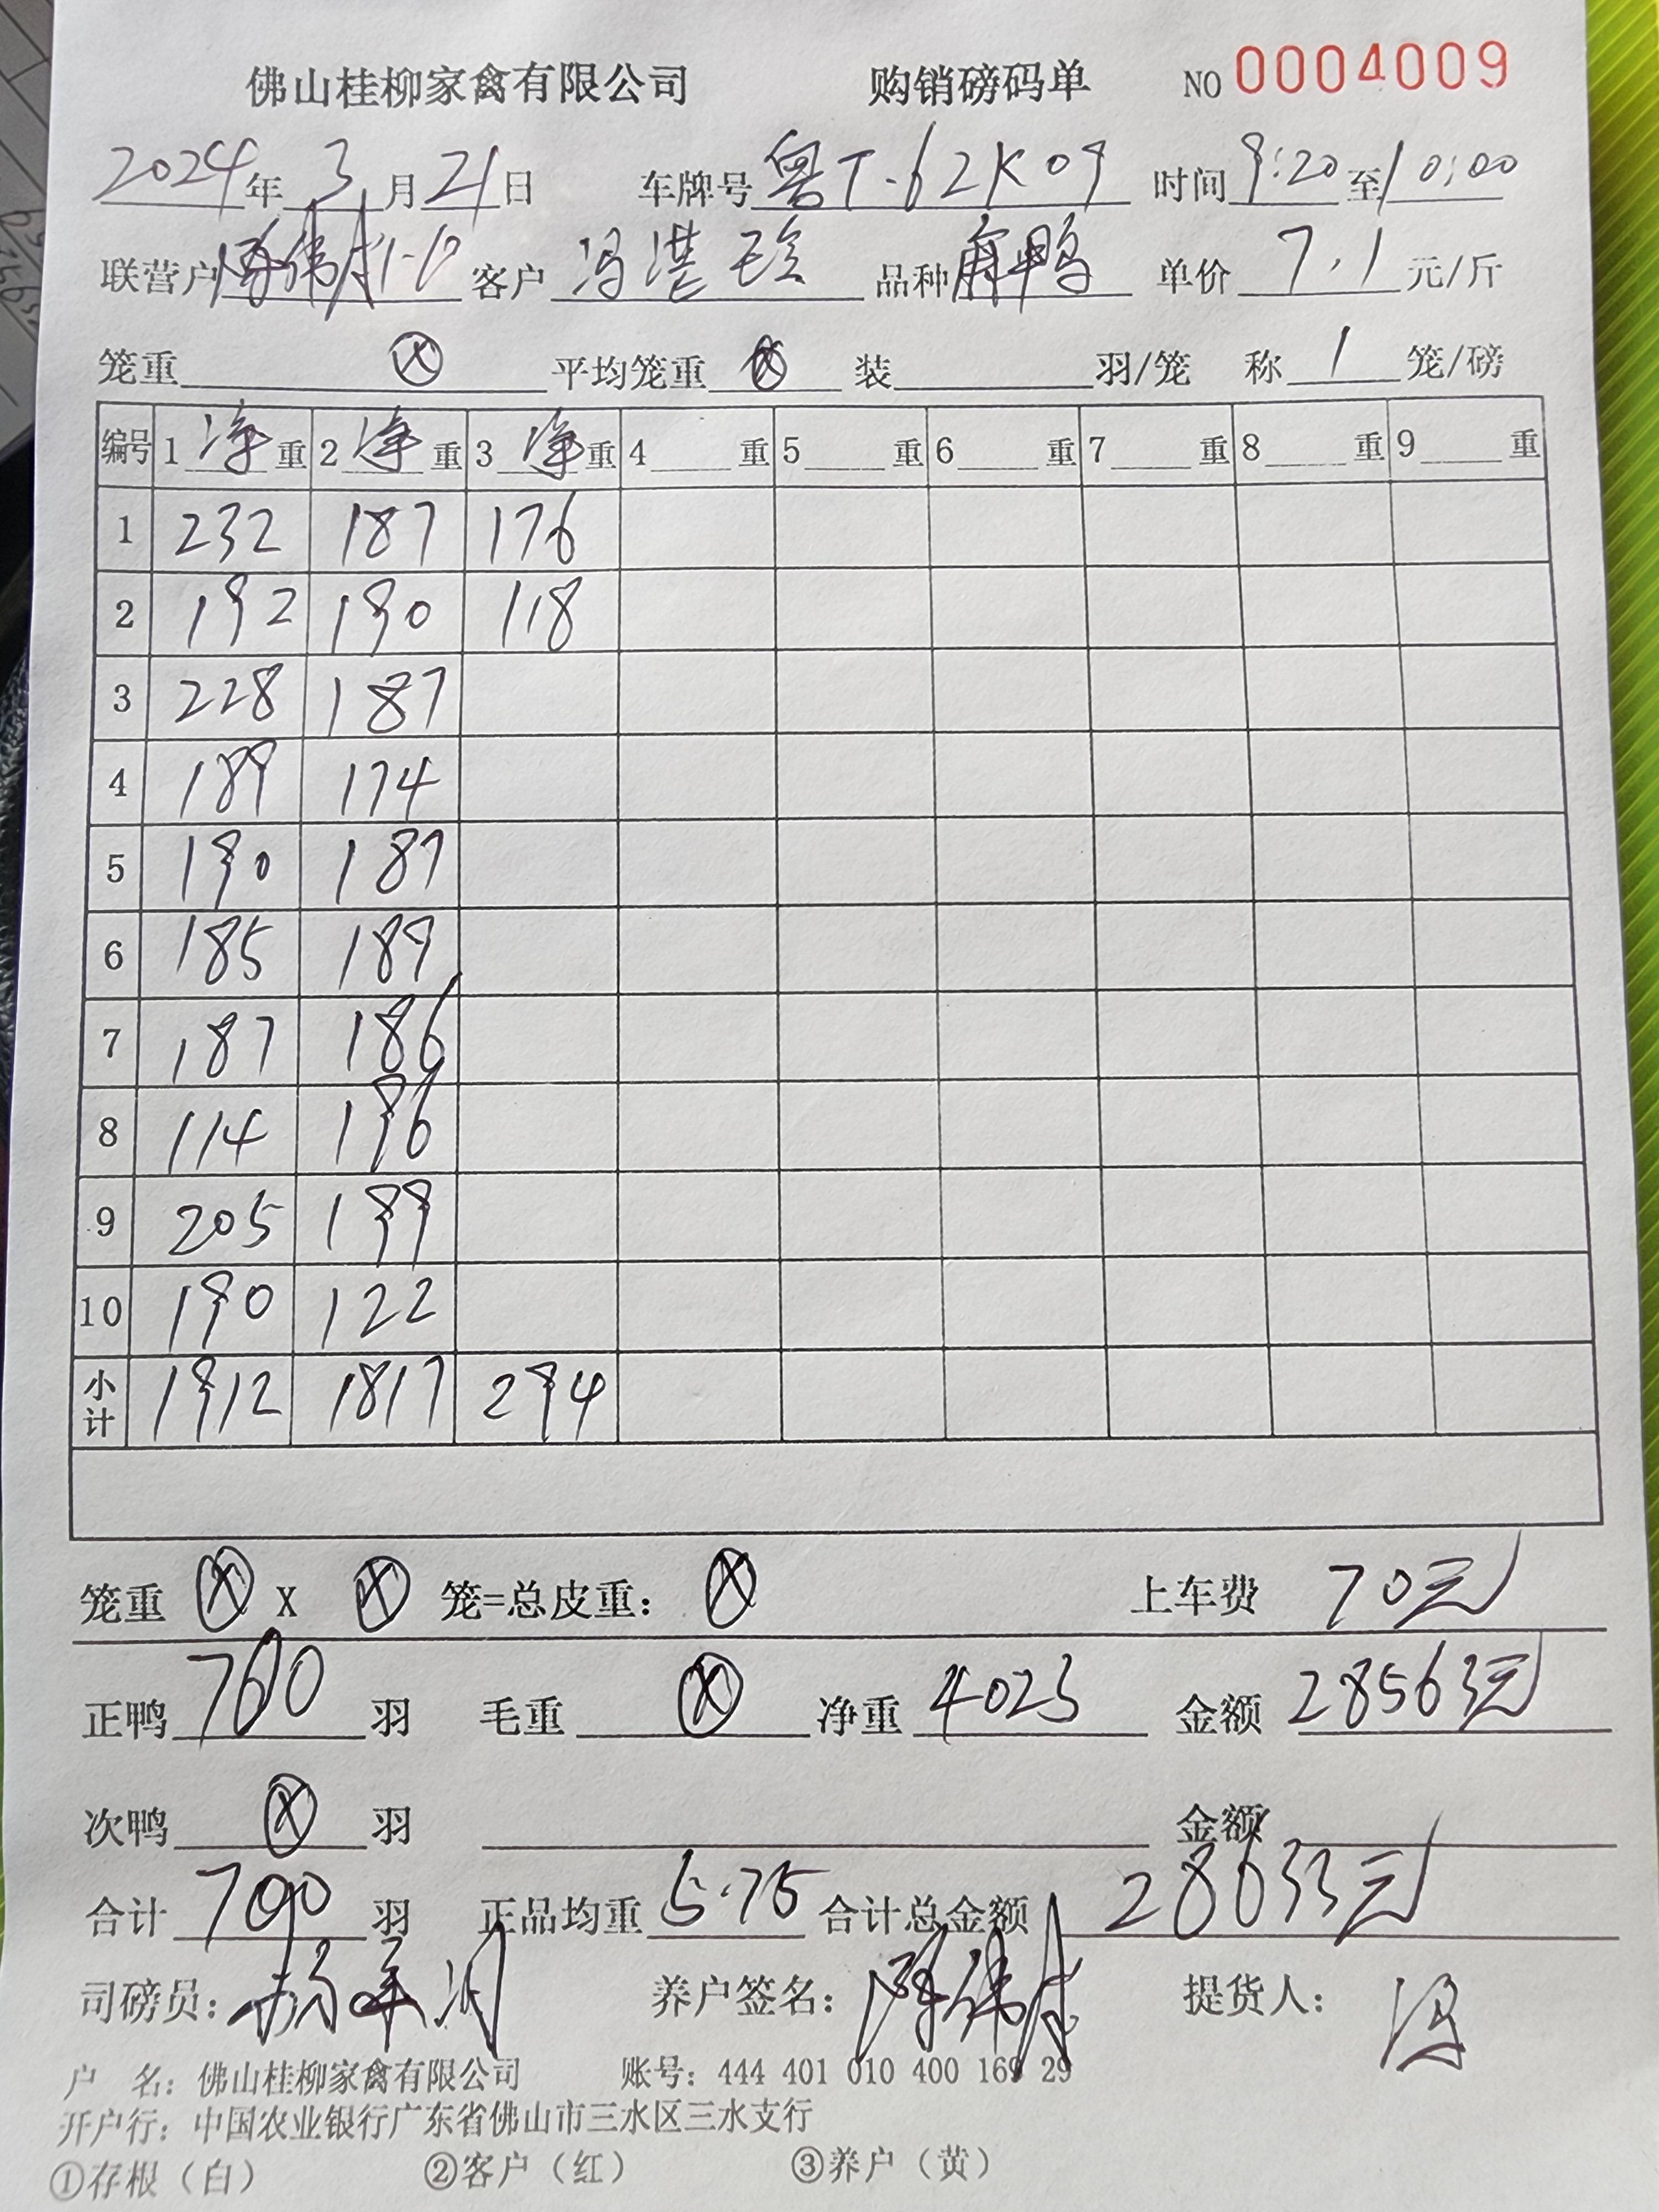 佛山桂柳家禽有限公司 购销磅码单 NO 0004009
2024年 3月 21日 车牌号 粤T-62K09 时间 9:20 至 10:00
联营户 客户 冯 品种 麻鸭 单价 7.1 元/斤
笼重 ⓧ 平均笼重 ⓧ 装 羽/笼 称 1 笼/磅
编号 1 净 重 2 净 重 3 净 重 4 重 5 重 6 重 7 重 8 重 9 重
1 232 187 176
2 192 190 118
3 228 187
4 189 174
5 190 187
6 185 189
7 187 186
8 114 196
9 205 199
10 190 122
小计 1912 1817 294
笼重 ⓧ X ⓧ 笼=总皮重: ⓧ 上车费 70元
正鸭 700 羽 毛重 ⓧ 净重 4023 金额 28563元
次鸭 ⓧ 羽 金额
合计 700 羽 正品均重 5.75 合计总金额 28633元
司磅员: 养户签名: 提货人: 冯
户 名: 佛山桂柳家禽有限公司 账号: 444 401 010 400 169 29
开户行: 中国农业银行广东省佛山市三水区三水支行
①存根（白） ②客户（红） ③养户（黄）